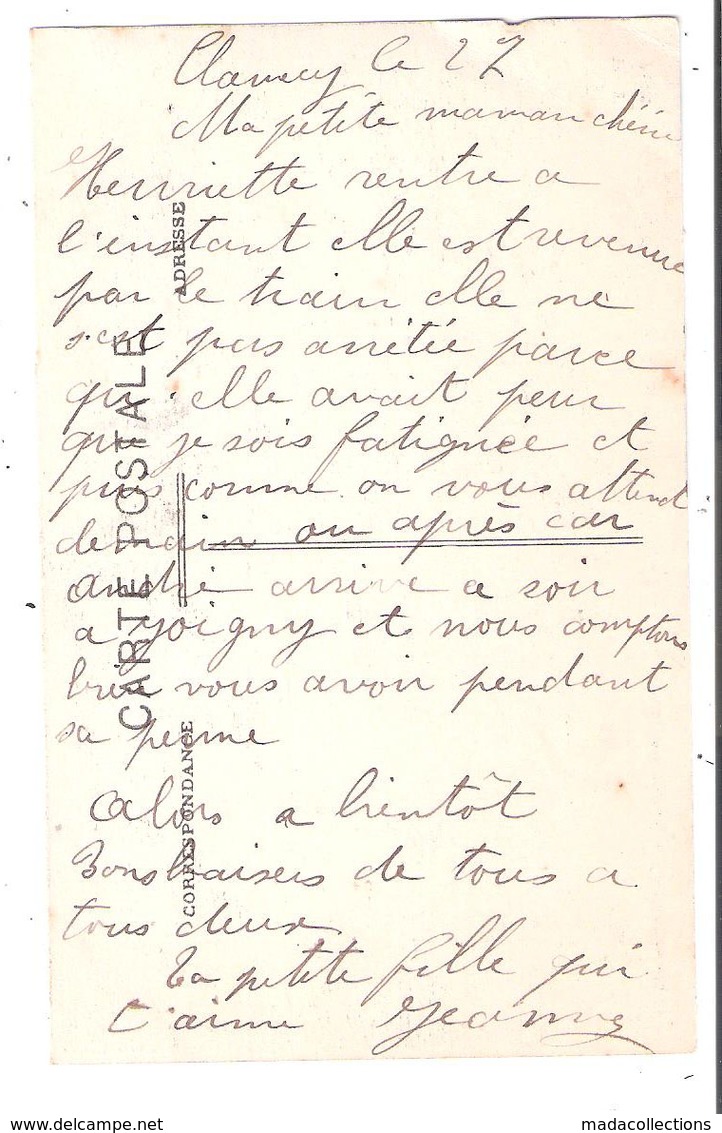 Clamecy le 27
Ma petite maman chérie
Henriette rentre a
l'instant elle est revenue
par le train elle ne
s'est pas arrêtée parce
qu'elle avait peur
que je sois fatiguée et
puis comme on vous attend
demain ou après car
André arrive ce soir
a Joigny et nous comptons
bien vous avoir pendant
sa perme
Alors a bientôt
Bons baisers de tous a
tous deux
Ta petite fille qui
t'aime Jeanne
CARTE POSTALE
CORRESPONDANCE
ADRESSE
www.delcampe.net
madacollections